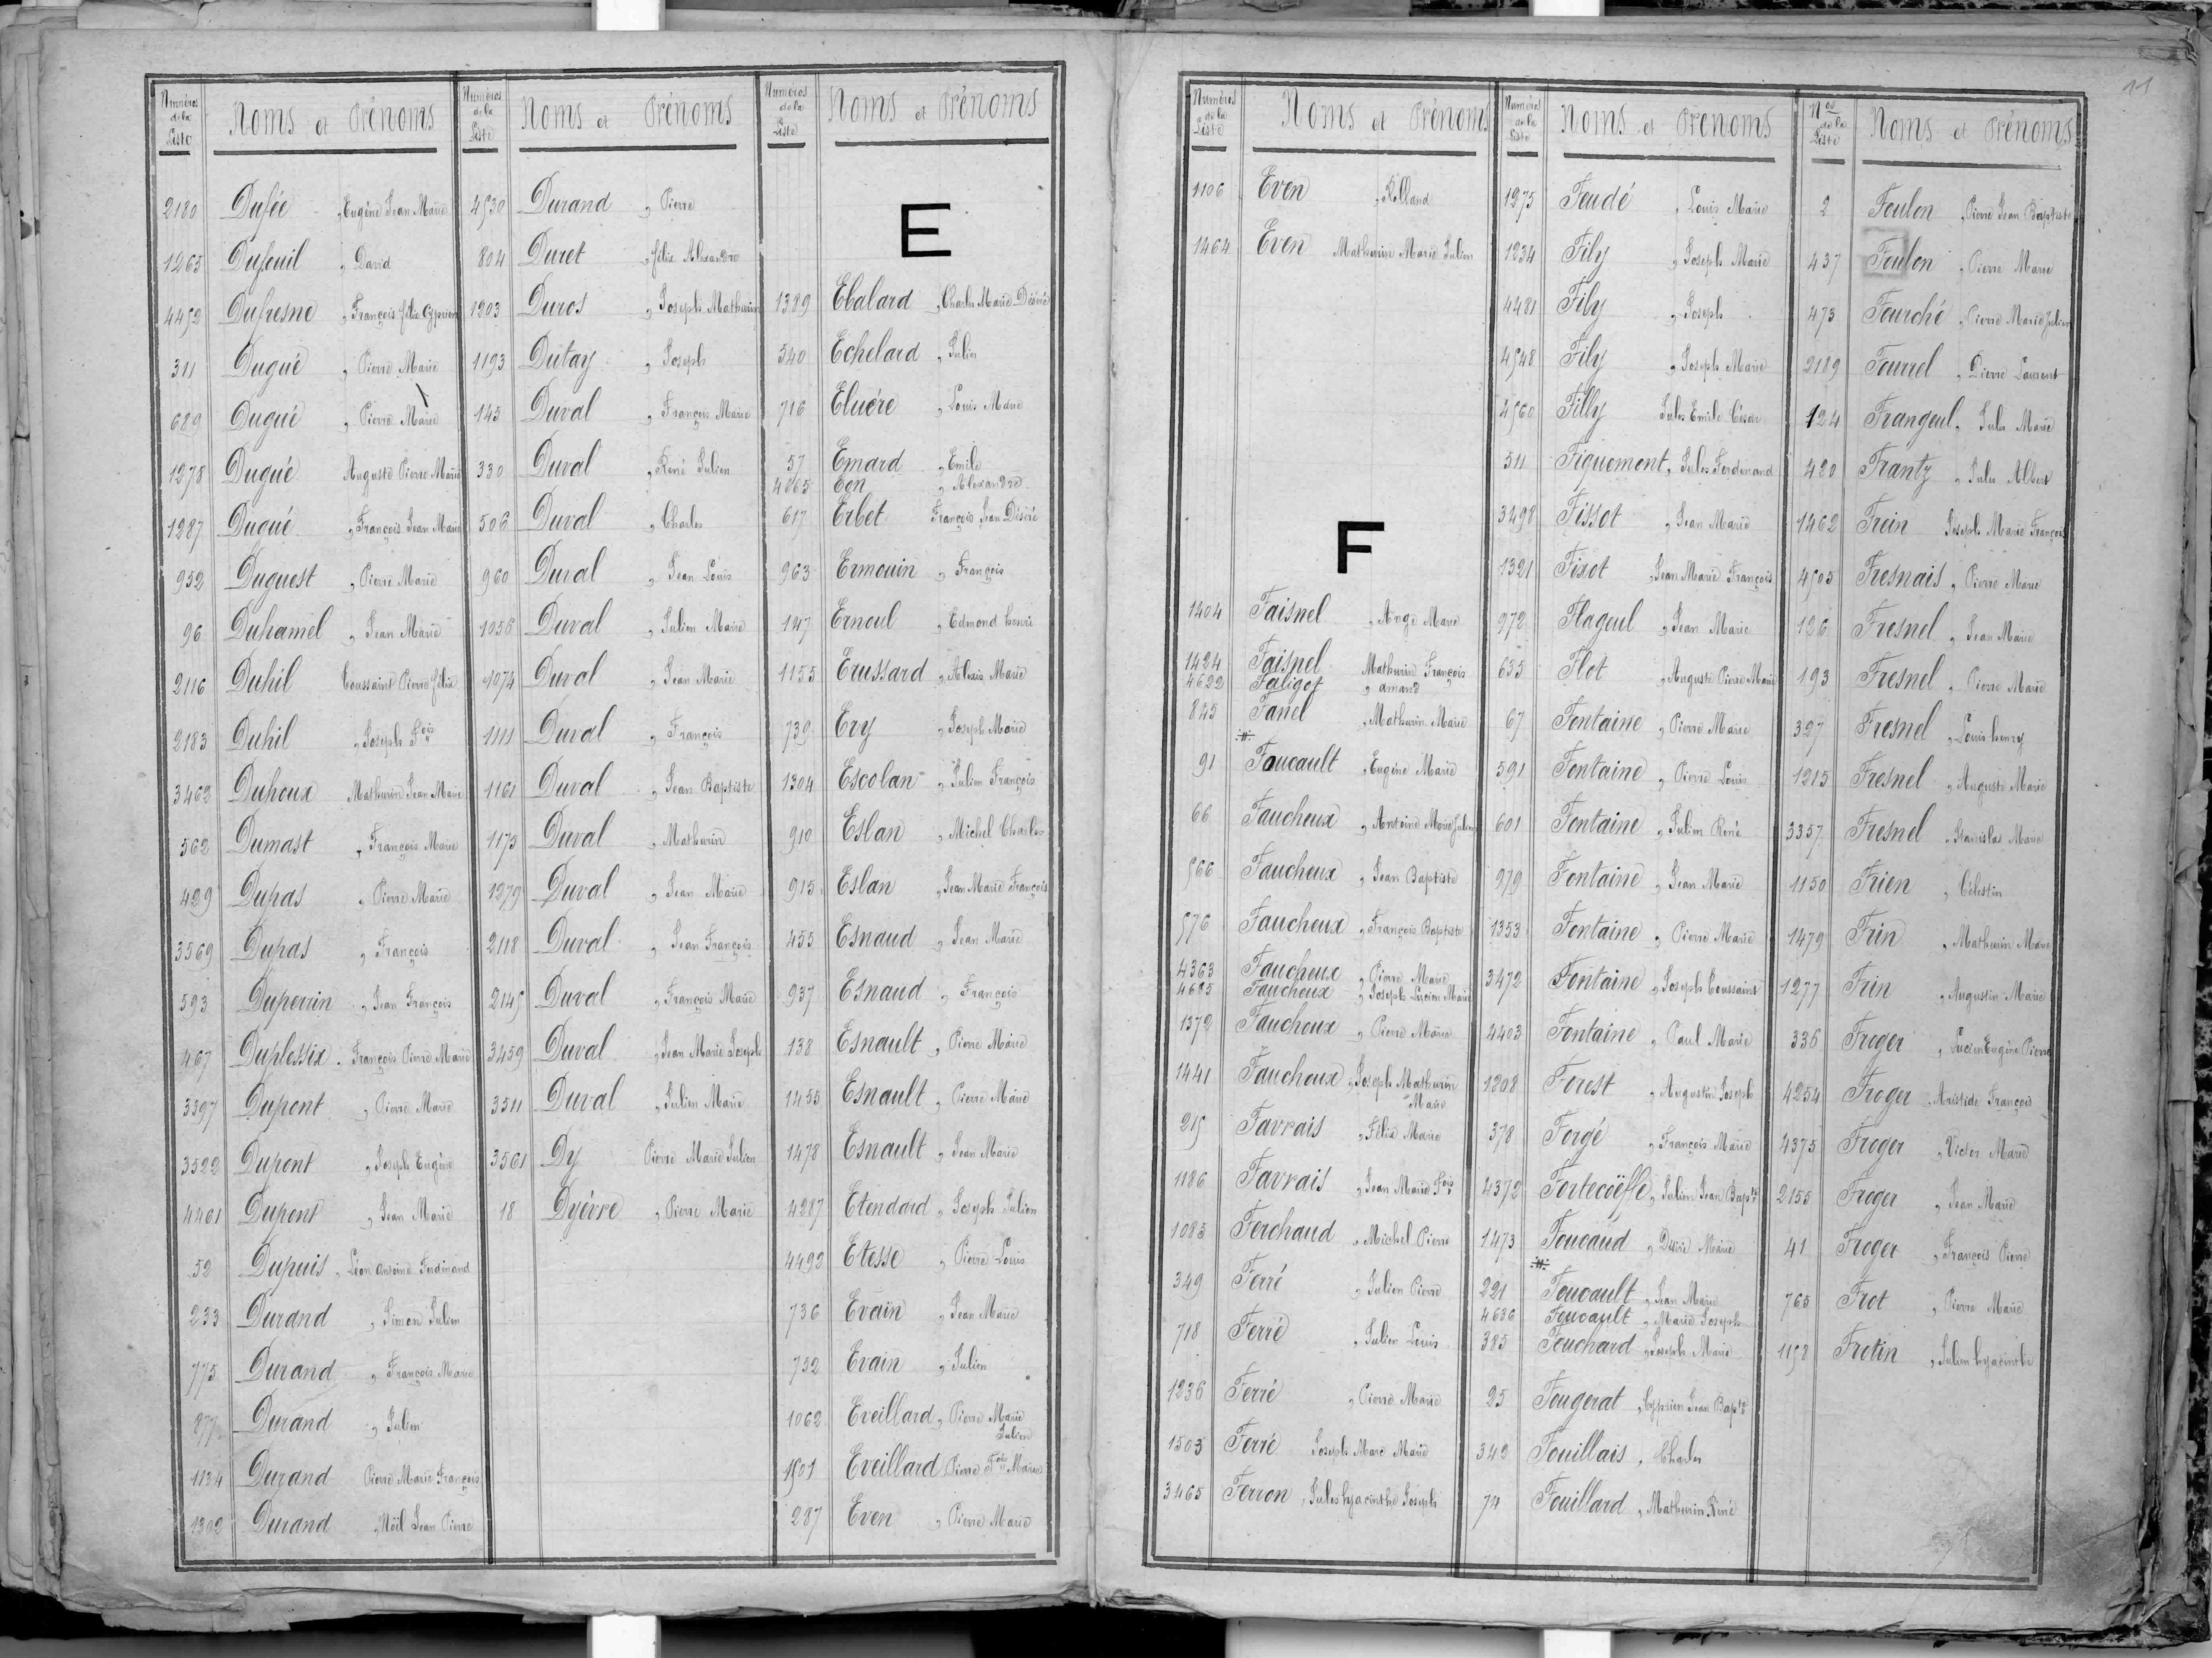 Numéros de la Liste Noms et Prénoms
2180 Dufée , Eugène Jean Marie
1265 Dufeuil , David
4452 Dufresne , François félix Cyprien
311 Dugué , Pierre Marie
689 Dugué , Pierre Marie
1278 Dugué Auguste Pierre Marie
1287 Dugué , François Jean Marie
952 Duguest , Pierre Marie
96 Duhamel , Jean Marie
2116 Duhil Toussaint Pierre félix
2183 Duhil , Joseph Fois
3462 Duhoux Mathurin Jean Marie
562 Dumast , François Marie
429 Dupas , Pierre Marie
3369 Dupas , François
593 Duperrin , Jean François
467 Duplessix . François Pierre Marie
3397 Dupont , Pierre Marie
3522 Dupont , Joseph Eugène
4461 Dupont , Jean Marie
52 Dupuis , Léon Antoine Ferdinand
233 Durand , Simon Julien
775 Durand , François Marie
877 Durand , Julien
1134 Durand Pierre Marie François
1302 Durand , Noël Jean Pierre
Numéros de la Liste Noms et Prénoms
4530 Durand , Pierre
804 Duret , félix Alexandre
1203 Duros , Joseph Mathurin
1193 Dutay , Joseph
145 Duval , François Marie
330 Duval , René Julien
506 Duval , Charles
960 Duval , Jean Louis
1056 Duval , Julien Marie
1074 Duval , Jean Marie
1111 Duval , François
1161 Duval , Jean Baptiste
1175 Duval , Mathurin
1279 Duval , Jean Marie
2118 Duval , Jean François
2145 Duval , François Marie
3459 Duval , Jean Marie Joseph
3511 Duval , Julien Marie
3561 Dy Pierre Marie Julien
18 Dyèvre , Pierre Marie
Numéros de la Liste Noms et Prénoms
E
1389 Ebalard , Charles Marie Désiré
540 Echelard , Julien
716 Eluère , Louis Marie
57 Emard , Emile
4065 Eon , Alexandre
617 Erbet François Jean Désiré
963 Ermouin , François
147 Ernoul , Edmond henri
1155 Erussard , Alexis Marie
739 Ery , Joseph Marie
1304 Escolan , Julien François
910 Eslan , Michel Charles
915 Eslan , Jean Marie François
455 Esnaud , Jean Marie
937 Esnaud , François
138 Esnault , Pierre Marie
1455 Esnault , Pierre Marie
1478 Esnault , Jean Marie
4287 Etendard , Joseph Julien
4492 Etesse , Pierre Louis
736 Evain , Jean Marie
752 Evain , Julien
1062 Eveillard , Pierre Marie
Julien
1501 Eveillard Pierre Fois Marie
287 Even , Pierre Marie
11
Numéros de la Liste Noms et Prénoms
1106 Even , Rolland
1464 Even Mathurin Marie Julien
F
1404 Faisnel , Ange Marie
1424 Faisnel Mathurin François
4622 Faligot , amand
845 Fanel , Mathurin Marie
#
91 Foucault , Eugène Marie
66 Faucheux , Antoine Marie Julien
566 Faucheux , Jean Baptiste
576 Faucheux , François Baptiste
4363 Faucheux , Pierre Marie
4685 Faucheux , Joseph Lucien Marie
1372 Faucheux , Pierre Marie
1441 Faucheux , Joseph Mathurin
Marie
215 Favrais , Félix Marie
1186 Favrais , Jean Marie Fois
1085 Ferchaud , Michel Pierre
349 Ferré , Julien Pierre
718 Ferré , Julien Louis
1236 Ferré , Pierre Marie
1503 Ferré Joseph Marc Marie
3465 Ferron , Jules hyacinthe Joseph
Numéros de la Liste Noms et Prénoms
1275 Feudé , Louis Marie
1234 Fily , Joseph Marie
4481 Fily , Joseph
4548 Fily , Joseph Marie
4560 Filly Jules Emile César
511 Fiquemont , Jules Ferdinand
3498 Fissot , Jean Marie
1321 Fixot , Jean Marie François
972 Flageul , Jean Marie
635 Flot , Auguste Pierre Marie
67 Fontaine , Pierre Marie
591 Fontaine , Pierre Louis
601 Fontaine , Julien René
979 Fontaine , Jean Marie
1353 Fontaine , Pierre Marie
3472 Fontaine , Joseph Toussaint
4403 Fontaine , Paul Marie
1208 Forest , Augustin Joseph
378 Forgé , François Marie
4372 Fortecoëffe , Julien Jean Bapte
1473 Foucaud , Désiré Marie
#
221 Foucault , Jean Marie
4636 Foucault , Marie Joseph
385 Fouchard , Joseph Marie
25 Fougerat , Cyprien Jean Bapte
342 Fouillais , Charles
74 Fouillard , Mathurin René
Nos de la Liste Noms et Prénoms
2 Foulon , Pierre Jean Baptiste
437 Foulon , Pierre Marie
473 Fourché , Pierre Marie Julien
2189 Fourrel , Pierre Laurent
124 Frangeul , Jules Marie
420 Frantz , Jules Albert
1462 Frein Joseph Marie François
4505 Fresnais , Pierre Marie
126 Fresnel , Jean Marie
193 Fresnel , Pierre Marie
327 Fresnel , Louis henry
1215 Fresnel , Auguste Marie
3357 Fresnel , Stanislas Marie
1150 Frien , Célestin
1479 Frin , Mathurin Marie
1277 Frin , Augustin Marie
336 Froger , Lucien Eugène Pierre
4254 Froger , Aristide François
4375 Froger , Victor Marie
2155 Froger , Jean Marie
41 Froger , François Pierre
765 Frot , Pierre Marie
1158 Frotin , Julien hyacinthe